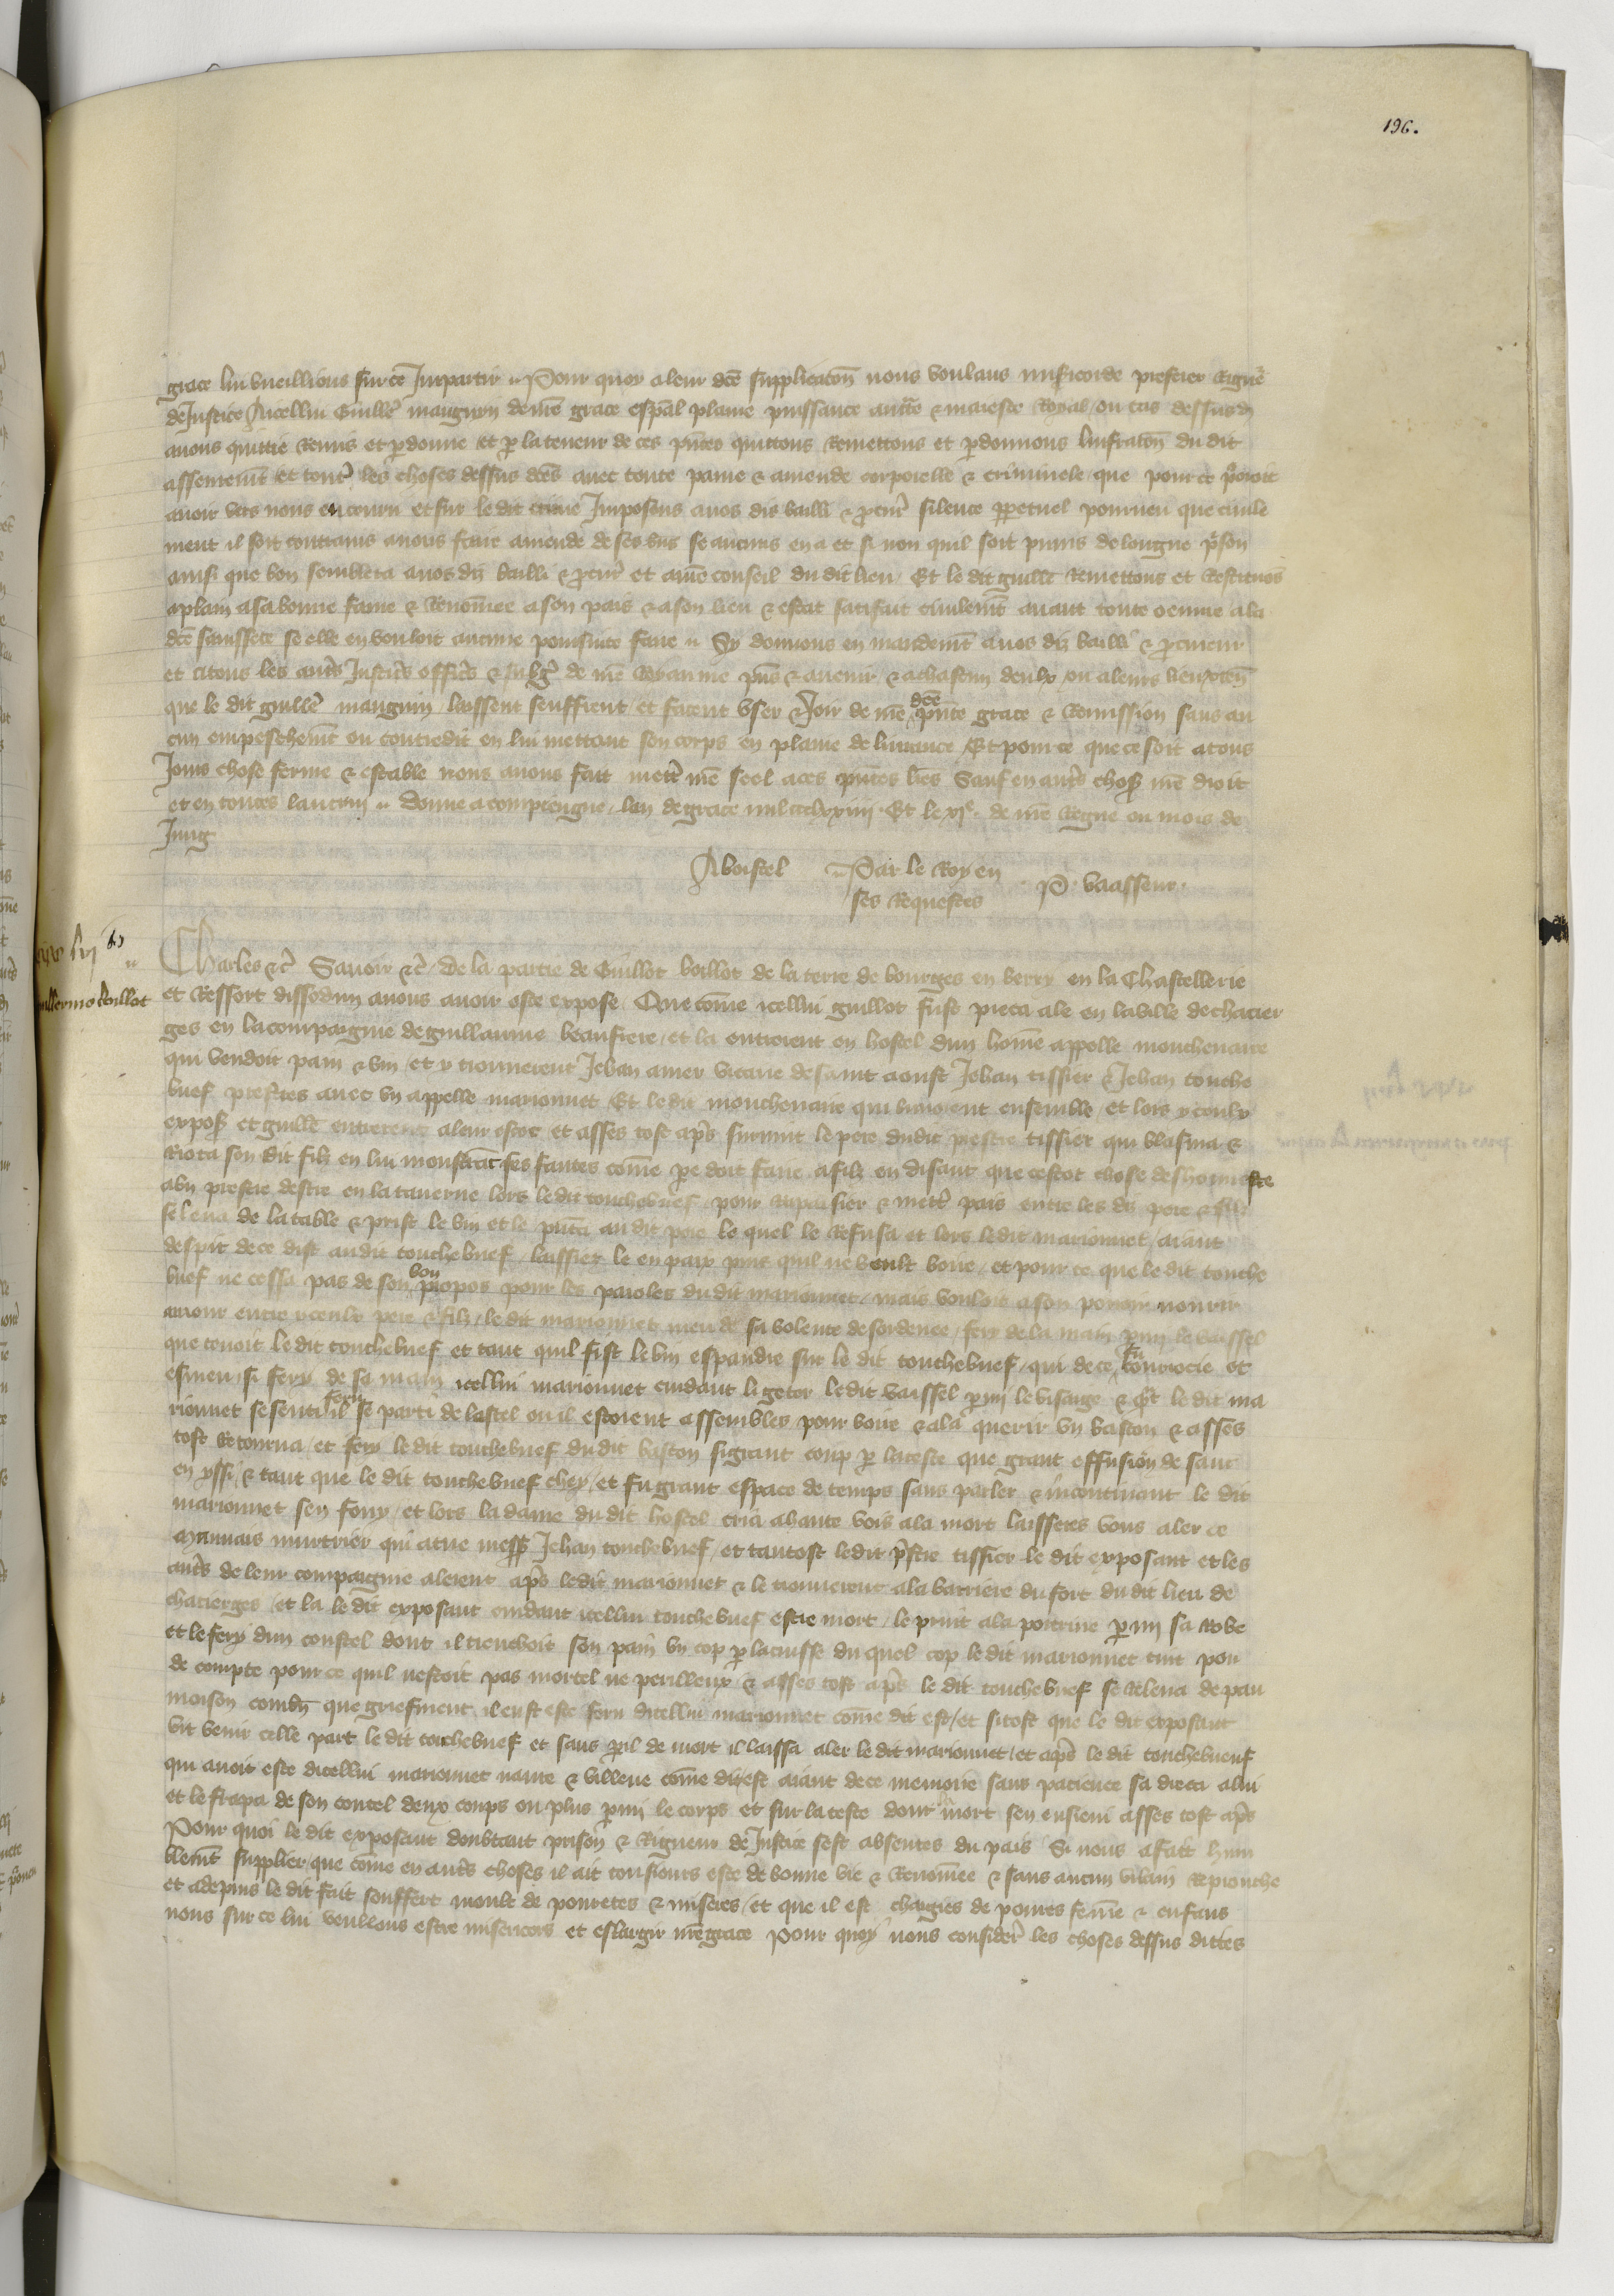 196.
grace lui vueillions sur ce Impartir Pour quoy a leur dce supplicacon nous voulans misericorde preferer Rigur
de Justice A icellui Guille mauguin de nre grace espal plaine puissance aucte & maieste Royal ou cas dessusd
avons quittie Remis et pdonne et p la teneur de ces pntes quittons Remettons et pdonnons linfracon du dit
assentemt et tout les choses dessus dces avec toute paine & amende corporelle & criminele que pour ce porroit
avoir vers nous encouru et sur le dit crime Imposons a nos dis bailli & pcur silence ppetuel pourveu que civile
ment il soit contrains a nous faire amende de ses biens se aucuns en a et si non quil soit punis de longue prison
ainsi que bon semblera a nos diz bailli & pcur et a nre conseil du dit lieu Et le dit guille Remettons et Restituons
a plain a sa bonne fame & Renomee a son pais & a son lieu & estat satisfait civilemt avant toute oeuvre a la
dce se elle en vouloit aucune poursuite faire Sy donnons en mandemt a nos diz bailli & pcureur
et a tous les autrs Justicrs officrs & de nre Royaume pns & avenir & a chascun deulx ou a leurs lieuxten
que le dit guille mauguin laissent seuffrent et facent user & Joir de nre dce pnte grace & Remission sans au
cun empeschemt ou contredit en lui mettant son corps en plaine delivrance Et pour ce que ce soit a tous
Jours chose ferme & estable nous avons fait mettr nre seel a ces pntes lres Sauf en autrs choses nre droit
et en toutes lautrui donne a compiengne lan de grace mil ccclxxiiii Et le xje de nre Regne ou mois de
Juing
A boistel Par le Roy en
ses Requestes P. Vaasseur.
Guillermo boillot
Charles &c Savoir &c De la partie de Guillot boillot de la terre de bourges en berry en la Chastellerie
et Ressort dissodun a nous avoir este expose Que come icellui guillot fust pieca ale en la ville de chacier
ges en la compaignie de guillaume beaufrere et la entrerent en hostel dun home appelle mouchenaire
qui vendoit pain & vin et y trouverent Jehan amer vicaire de saint aoust Jehan tissier & Jehan touche
buef prestres avec un appelle marionnet Et le dit mouchenaire qui buvoient ensemble et lors yceulx
expos et guille entrerent a leur escot et asses tost aprs survint le pere dudit prestre tissier qui blasma &
Riota son dit filz en lui monstrat ses fautes come pe doit faire a filz en disant que cestoit chose deshonneste
a un prestre destre en la taverne lors le dit touchebuef pour Rapaisier & mettr pais entre les dis pere & filz
se leva de la table & prist le vin et le pnta au dit pere le quel le Refusa et lors le dit marionnet aiant
despit de ce dist au dit touchebuef laissiez le en paix puis quil ne veult boire et pour ce que le dit touche
buef ne cessa pas de son bon propos pour les paroles du dit marionnet mais vouloit a son povoir nourrir
amour entre yceulx pere & filz le dit marionnet meu de sa volente desordenee fery de la main pmi le vaissel
que tenoit le dit touchebuef et tant quil fist le vin espandre sur le dit touchebuef qui de ce fu courrocie et
esmeu si fery de sa main icellui marionnet cuidant li geter le dit vaissel pmi le visaige & qt le dit ma
rionnet se senti feru il se parti de lostel ou il estoient assembles pour boire & ala querir un baston & asses
tost Retourna et fery le dit touchebuef du dit baston si grant coup p la teste que grant effusion de sanc
en yssi & tant que le dit touchebuef chey et fu grant espace de temps sans parler & incontinant le dit
marionnet sen fouy et lors la dame du dit hostel cria a haute vois a la mort laisseres vous aler ce
mauvais murtrier qui a tue mess Jehan touchebuef et tantost le dit prstre tissier le dit exposant et les
autrs de leur compaignie alerent aprs le dit marionnet & le trouverent a la barriere du fort du dit lieu de
chacierges et la le dit exposant cuidant icellui touchebuef estre mort le print a la poitrine pmi sa Robe
et le fery dun coustel dont il trenchoit son pain un cop p la cuisse du quel cop le dit marionnet tint pou
de compte pour ce quil nestoit pas mortel ne perilleux & asses tost aprs le dit touchebuef se Releva de pau
moison combn que griefment il eust este feru dicellui marionnet come dit est et si tost que le dit exposant
vit venir celle part le dit touchebuef et sans pil de mort il laissa aler le dit marionnet et aprs le dit touchebuenf
qui avoit este dicellui marionnet navre & villene come dit est aiant de ce memoire sans pacience sa dreca a lui
et le frapa de son coutel deux coups ou plus pmi le corps et sur la teste dont mort sen ensieui asses tost aprs
Pour quoi le dit exposant doubtant prison & Rigueur de Justice sest absentes du pais Si nous a fait hum
blemt supplier que come en autrs choses il ait tousiours este de bonne vie & Renomee & sans aucun vilain Reprouche
et a depuis le dit fait souffert moult de povretes & miseres et que il est chargies de povres feme & enfans
nous sur ce lui veullons estre misericors et eslargir nre grace Pour quoy nous considere les choses dessus dittes